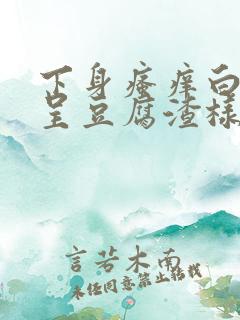 下身瘙痒白
呈豆腐渣様
言若木南
未经同意禁止转载